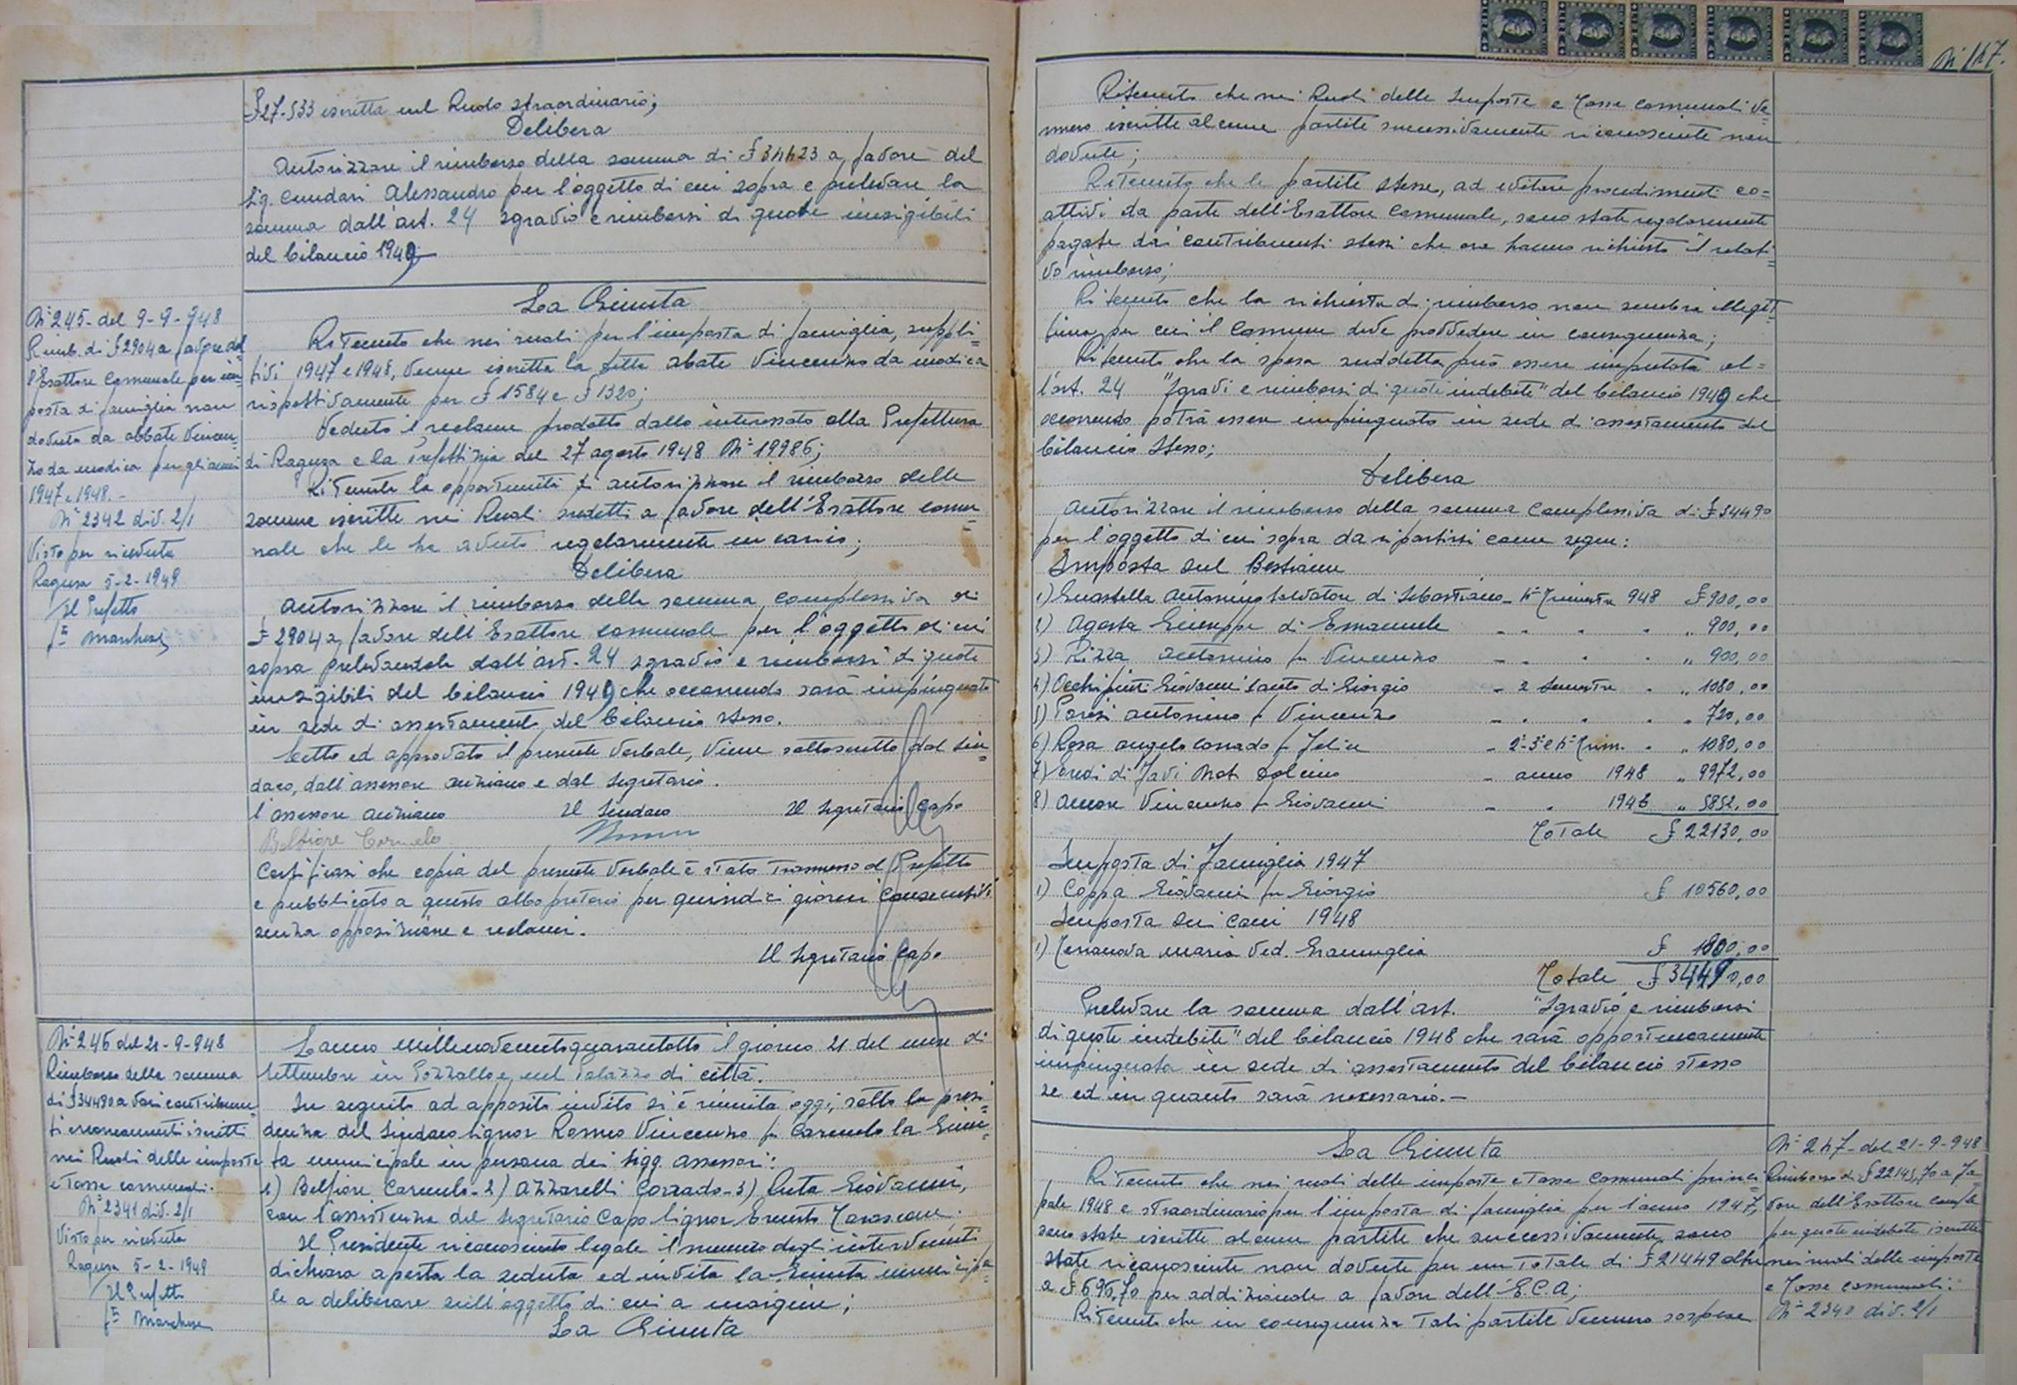 £ 27.533 iscritta nel Ruolo straordinario;
Delibera
Autorizzare il rimborso della somma di £ 34423 a favore del
Sig. Cundari Alessandro per l'oggetto di cui sopra e prelevare la
somma dall'art. 24 sgravio e rimborsi di quote inesigibili
del bilancio 1949
N° 245 - del 9-9-948
Rimb. di £ 2904 a favore del
l'Esattore Comunale per im=
posta di famiglia non
dovuta da Abbate Vincen=
zo da Modica per gli anni
1947 e 1948.-
N° 2342 div. 2/1
Visto per ricevuta
Ragusa 5-2-1949
Il Prefetto
f° Marchese
La Giunta
Ritenuto che nei ruoli per l'imposta di famiglia, suppli=
tivi 1947 e 1948, venne iscritta la ditta Abate Vincenzo da Modica
rispettivamente per £ 1584 e £ 1320;
Veduto il reclamo prodotto dallo interessato alla Prefettura
di Ragusa e la prefettizia del 27 agosto 1948 N° 19986;
Ritenuta la opportunità di autorizzare il rimborso delle
somme iscritte nei Ruoli suddetti a favore dell'Esattore comu=
nale che le ha avute regolarmente in carico;
Delibera
Autorizzare il rimborso della somma complessiva di
£ 2904 a favore dell'Esattore comunale per l'oggetto di cui
sopra prelevandola dall'art. 24 sgravio e rimborsi di quote
inesigibili del bilancio 1949 che occorrendo sarà impinguato
in sede di assestamento del bilancio stesso.
Letto ed approvato il presente verbale, viene sottoscritto dal Sin=
daco, dall'assessore anziano e dal Segretario.
L'assessore anziano Il Sindaco Il Segretario Capo
Belfiore Carmelo
Certificasi che copia del presente verbale è stata trasmessa al Prefetto
e pubblicata a questo albo pretorio per quindici giorni consecutivi
senza opposizione e reclami.
Il Segretario Capo
N° 246 del 21-9-948
Rimborso della somma
di £ 34490 a vari contribuen=
ti erroneamenti iscritti
nei Ruoli delle imposte
e Tasse comunali.
N° 2341 div. 2/1
Visto per ricevuta
Ragusa 5-2-1949
Il Prefetto
f° Marchese
L'anno millenovecentoquarantotto il giorno 21 del mese di
Settembre in Pozzallo e nel Palazzo di città.
In seguito ad apposito invito si è riunita oggi, sotto la presi=
denza del Sindaco Signor Romeo Vincenzo fu Carmelo la Giun=
ta municipale in persona dei Sigg. assessori:
1) Belfiore Carmelo - 2) Azzarelli Corrado - 3) Puta Giovanni,
con l'assistenza del Segretario Capo Signor Ernesto Tarascone.
Il Presidente riconosciuto legale il numero degli intervenuti
dichiara aperta la seduta ed invita la Giunta municipa=
le a deliberare sull'oggetto di cui a margine;
La Giunta
N° 147.
Ritenuto che nei Ruoli delle Imposte e Tasse Comunali ven=
nnero iscritte alcune partite successivamente riconosciute non
dovute;
Ritenuto che le partite stesse, ad evitare procedimenti co=
attivi da parte dell'Esattore Comunale, sono state regolarmente
pagate dai contribuenti stessi che ora hanno richiesto il relati=
vo rimborso;
Ritenuto che la richiesta di rimborso non sembra illegit=
tima, per cui il Comune deve provvedere in conseguenza;
Ritenuto che la spesa suddetta può essere imputata al=
l'art. 24 "Sgravi e rimborsi di quote indebite" del bilancio 1949 che
occorrendo potrà essere impinguato in sede di assestamento del
bilancio stesso;
Delibera
Autorizzare il rimborso della somma complessiva di £ 34490
per l'oggetto di cui sopra da ripartirsi come segue:
Imposta sul Bestiame
1) Guastella Antonino Salvatore di Sebastiano - 4° Trimestre 948 £ 900,00
2) Agosta Giuseppe di Emanuele - " " " " 900,00
3) Rizza Antonino fu Vincenzo - " " " " 900,00
4) Occhipinti Giovanni Santo di Giorgio - 2 Semestre " " 1080,00
5) Parisi Antonino fu Vincenzo - " " " " 720,00
6) Rosa Angelo Corrado fu Felice - 2° 3° e 4° Trim. " " 1080,00
7) Eredi di Favi Not. Dolcino - anno 1948 " 9972,00
8) Amore Vincenzo fu Giovanni - " 1946 " 5852,00
Totale £ 22130,00
Imposta di Famiglia 1947
1) Coppa Giovanni fu Giorgio £ 10560,00
Imposta sui cani 1948
1) Terranova Maria Ved. Giannuglia £ 1800,00
Totale £ 34490,00
Prelevare la somma dall'art. "Sgravio e rimborsi
di quote indebite" del bilancio 1948 che sarà opportunamente
impinguato in sede di assestamento del bilancio stesso
se ed in quanto sarà necessario.-
La Giunta
Ritenuto che nei ruoli delle imposte e Tasse Comunali princi
pale 1948 e straordinario per l'imposta di famiglia per l'anno 1947,
sono state iscritte alcune partite che successivamente, sono
state riconosciute non dovute per un totale di £ 21449 oltre
a £ 696,70 per addizionale a favore dell'E.C.A;
Ritenuto che in conseguenza tali partite vennero sospese
N° 247 - del 21-9-948
Rimborso di £ 22145,70 a fa=
vore dell'Esattore Com/le
per quote indebite iscritte
nei ruoli delle imposte
e Tasse comunali.
N° 2340 div. 2/1